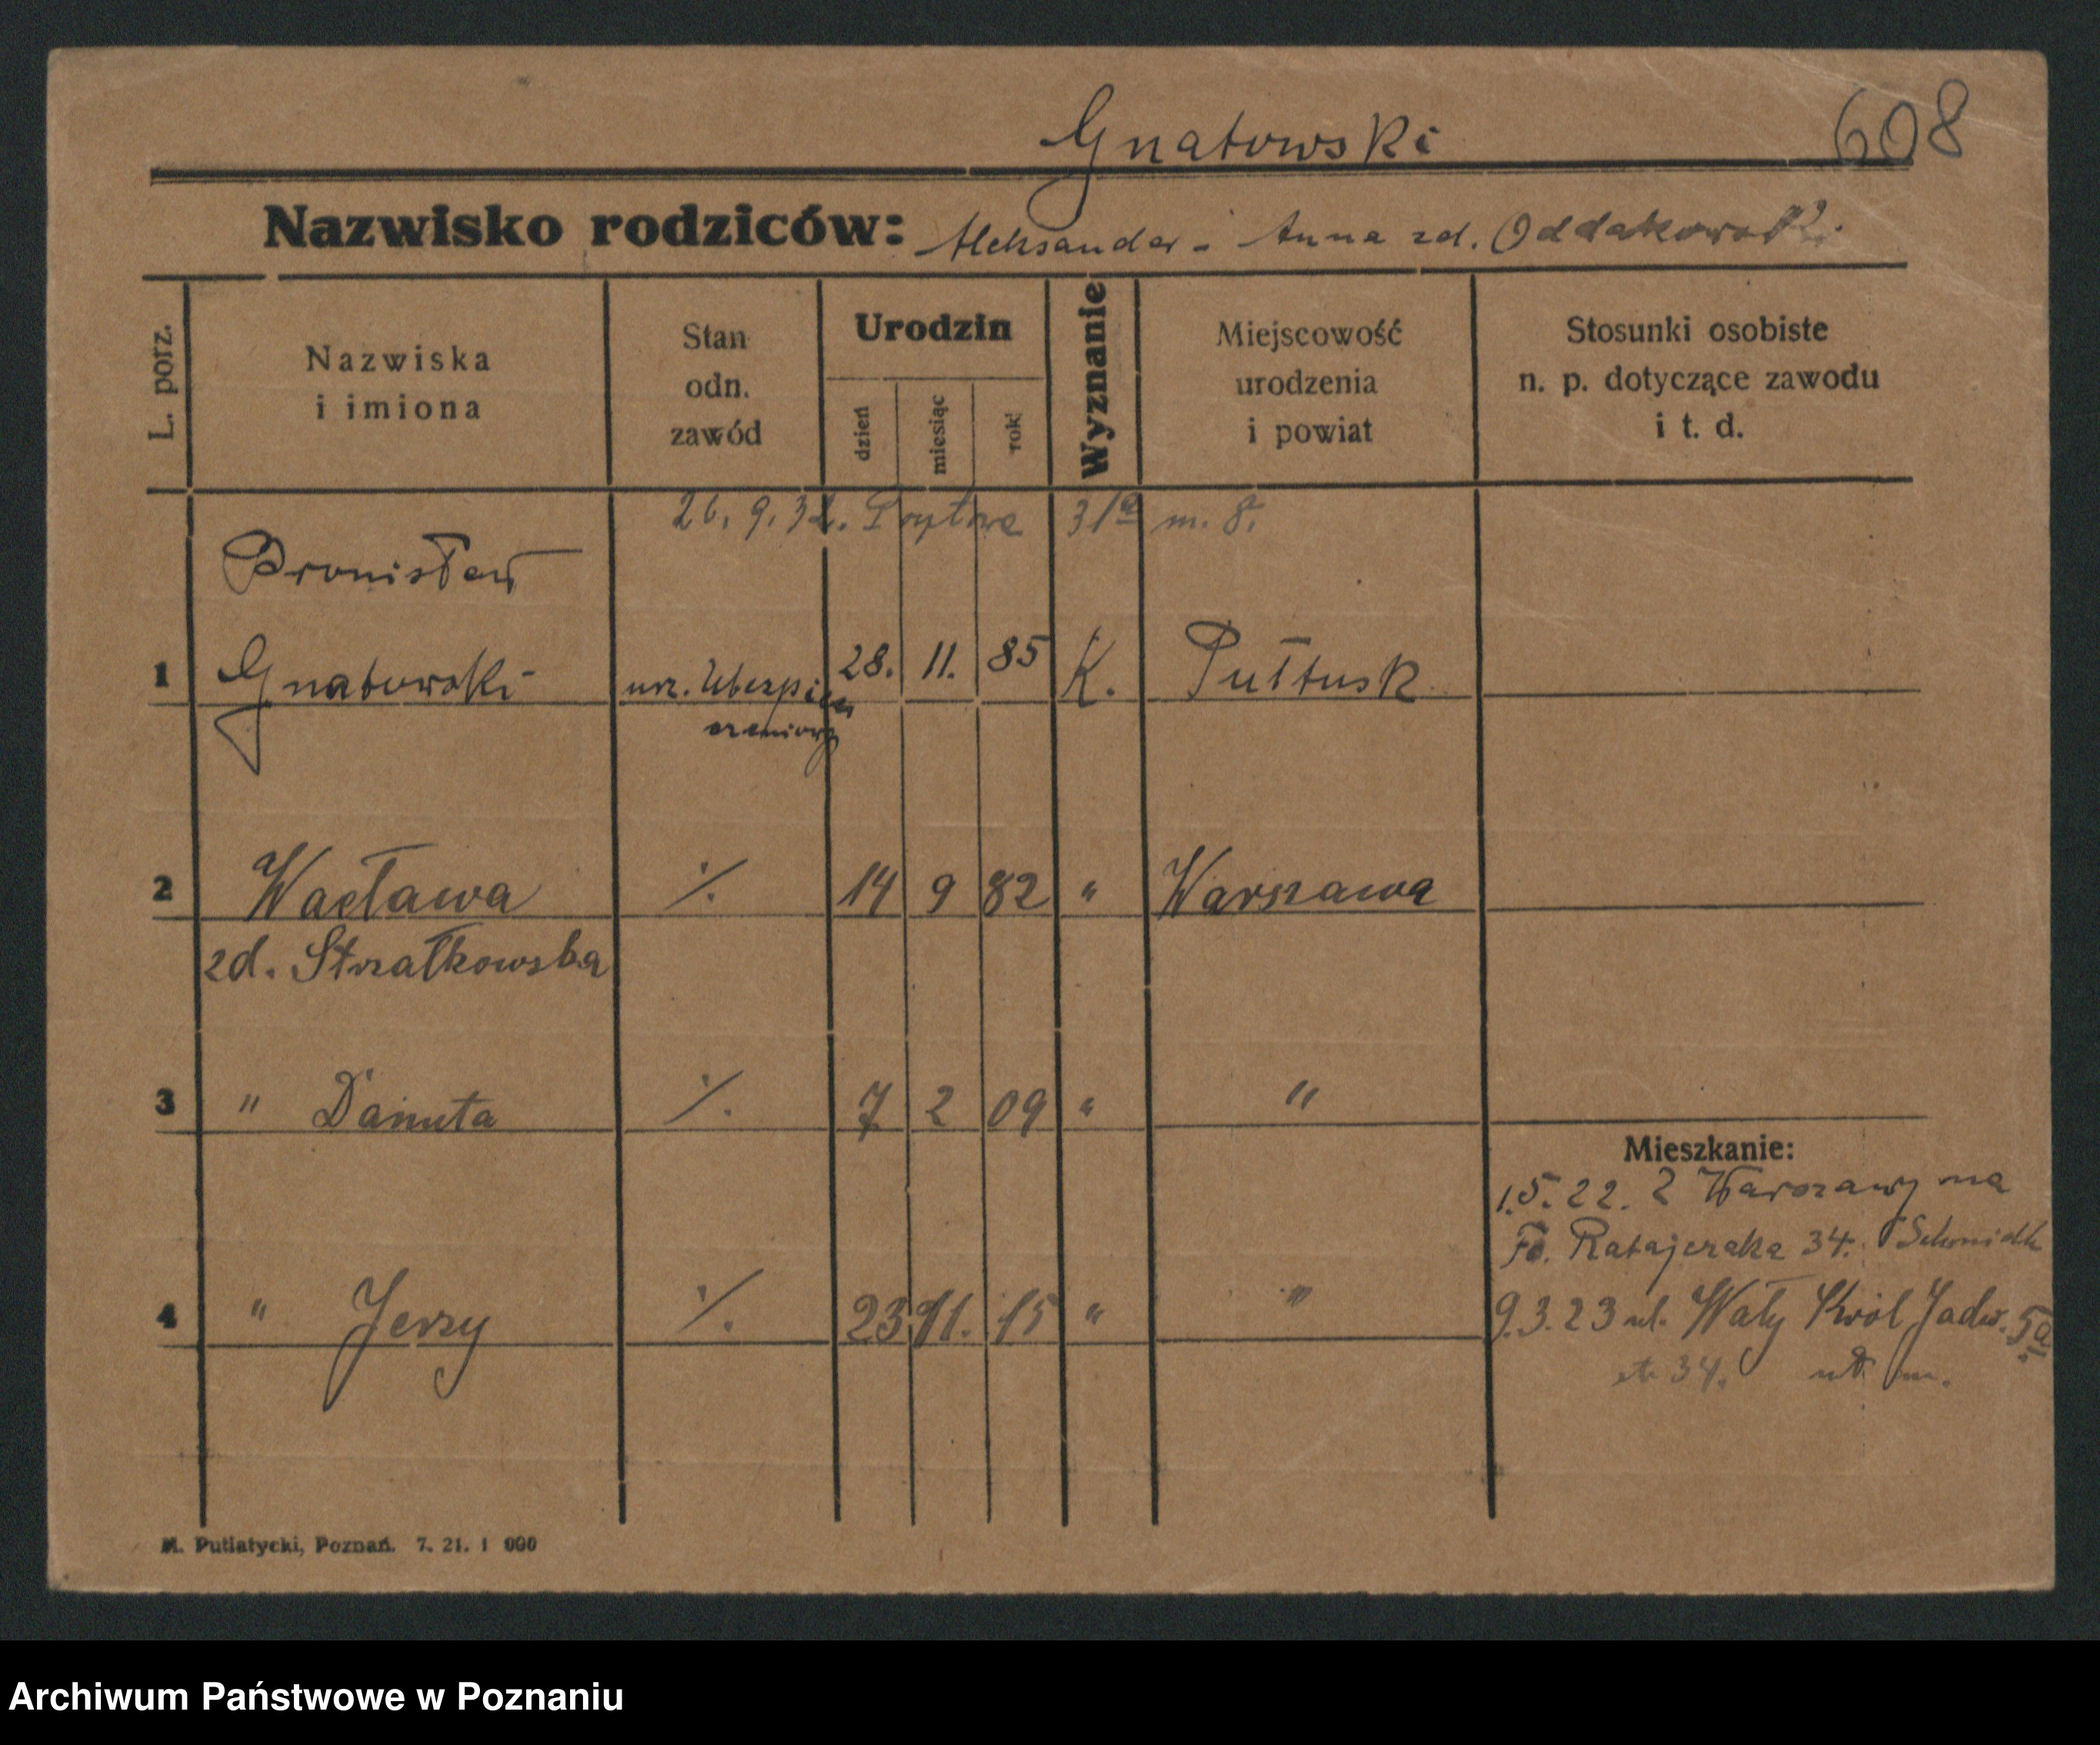 Gnatowski
608
Nazwisko rodziców: Aleksander - Anna zd.
L. porz.
Nazwiska
i imiona
Stan
odn.
zawód
Urodzin
dzień
miesiąc
rok
Wyznanie
Miejscowość
urodzenia
i powiat
Stosunki osobiste
n. p. dotyczące zawodu
i t. d.
26. 9. 32. 31a m. 8.
Bronisław
1 Gnatowski urz. Ubezpie 28. 11. 85 K. Pułtusk
czeniowy
2 Wacława ·/. 14 9 82 " Warszawa
zd. Strzałkowska
3 " Danuta ·/. 7 2 09 " "
Mieszkanie:
1.5.22. Z Warszawy na
Fr. Ratajczaka 34. Schmidt
4 " Jerzy ·/. 23 11. 15 " "
9.3.23 ul. Wały Król Jadw. 5a
34. m.
M. Putiatycki, Poznań. 7. 21. 1 000
Archiwum Państwowe w Poznaniu